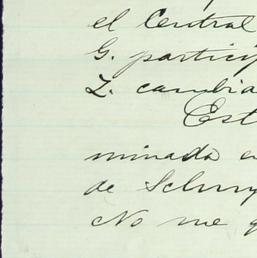 el Central
G. particip
Z. cambia
Est
minada e
de Schuy
No me q